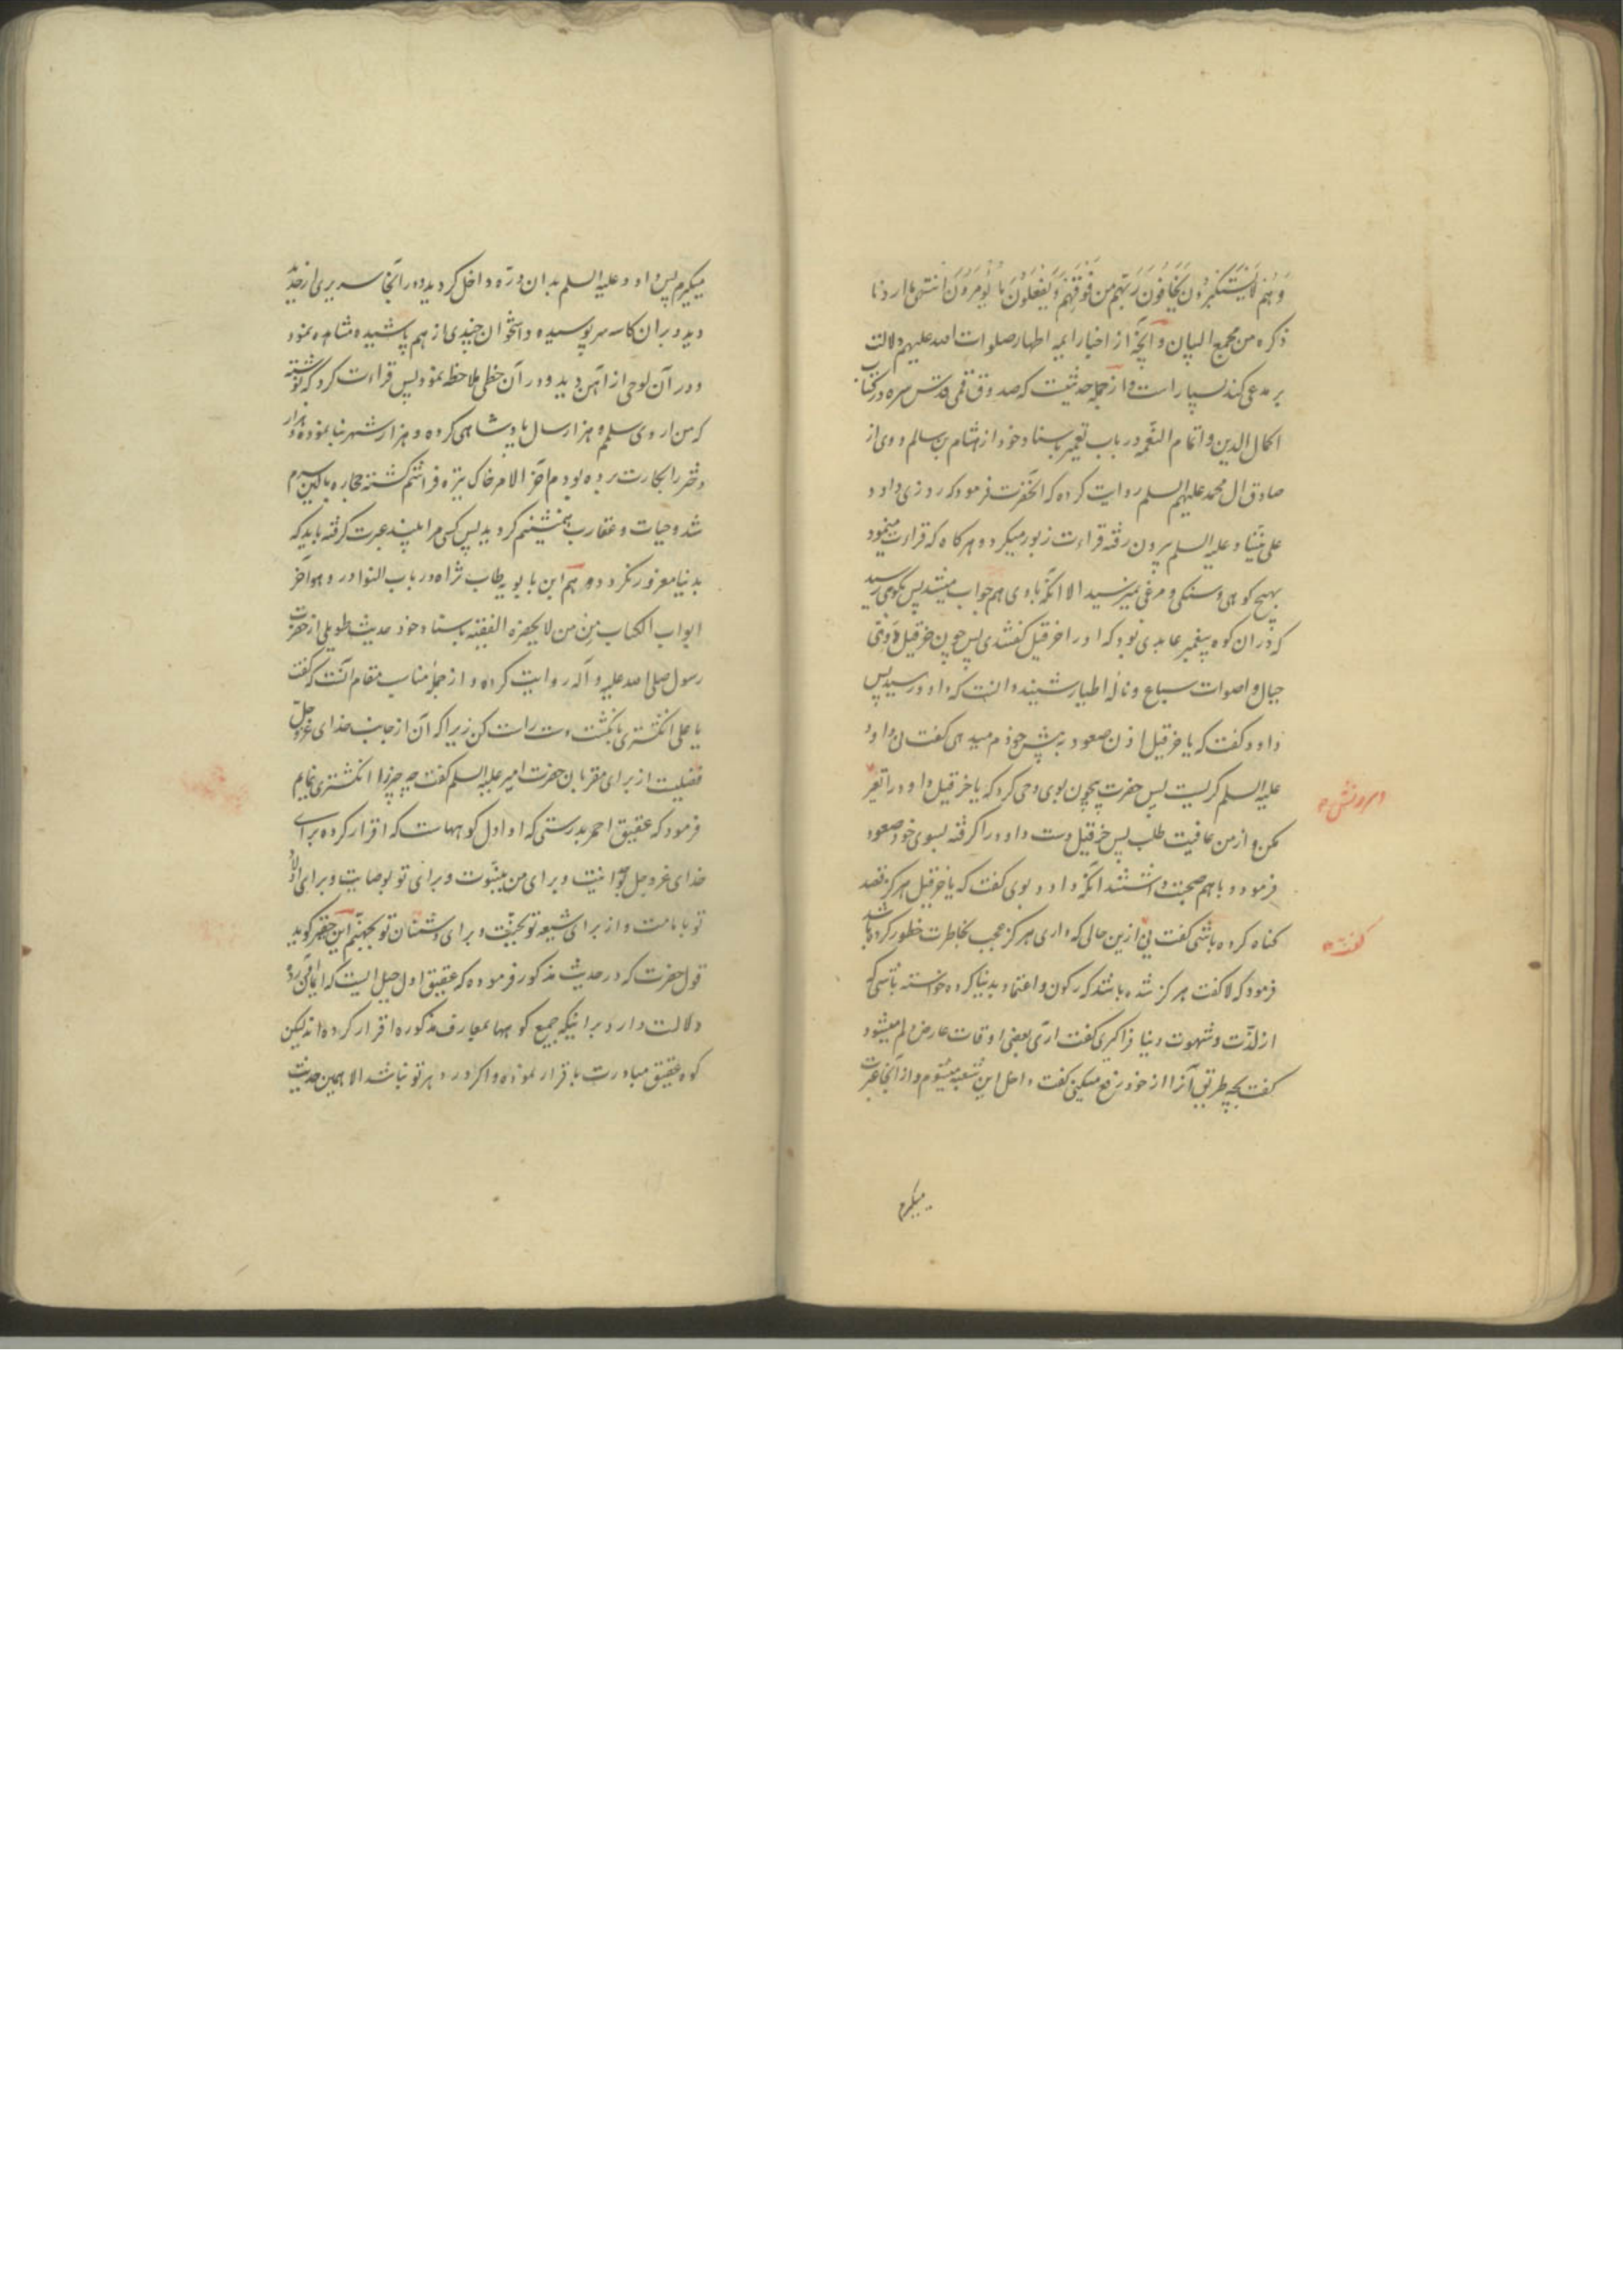 وَهُمْ لَا يَسْتَكْبِرُونَ يَخَافُونَ رَبَّهُمْ مِنْ فَوْقِهِمْ وَيَفْعَلُونَ مَا يُؤْمَرُونَ انتهى ما اردنا
ذكره من مجمع البيان وآنچه از اخبار ايمه اطهار صلوات الله عليهم دلالت
بر مدعى كند بسيار است و از جمله حديثيست كه صدوق قمى قدس سره در كتاب
اكمال الدين و اتمام النعمه در باب تعمير باسناد خود از هشام بن سالم و وى از
صادق ال محمد عليهم السلم روايت كرده كه انحضرت فرمود كه روزى داود
على نبينا و عليه السلم بيرون رفته قراءت زبور ميكرد و هر كاه كه قراءت مينمود
بهيچ كوهى و سنكى و مرغى نميرسيد الا آنكه با وى هم جواب ميشد پس بكوهى رسيد
كه در ان كوه پيغمبر عابدى بود كه او را خرقيل كفتندى پس چون خرقيل دوىّ
جبال و اصوات سباع و ناله اطيار شنيد دانست كه داود رسيد پس
داود كفت كه يا خرقيل اذن صعود به پيش خودم ميدهى كفت نه داود
عليه السلم كريست پس حضرت بيچون بوى وحى كرد كه يا خرقيل داود را تعير
مكن و از من عافيت طلب پس خرقيل دست داود را كرفته بسوى خود صعود
فرمود و با هم صحبت داشتند آنكه داود بوى كفت كه يا خرقيل هركز قصد
كناه كرده باشى كفت نى ازين حالى كه دارى هركز عجب بخاطرت خطور كرده باشد
فرمود كه لا كفت هركز شده باشد كه ركون و اعتماد بدنيا كرده خواسته باشى كه
از لذت و شهوت دنيا فراكيرى كفت ارى بعضى اوقات عارض دلم ميشود
كفت بچه طريق آنرا از خود رفع ميكنى كفت داخل اين شعبه ميشوم و از آنجا عبرت
ميكيرم
ميكيرم پس داود عليه السلم بدان درّه داخل كرديد و در آنجا سريرى از حديد
ديد و بر ان كاسه سر پوسيده و استخوان چندى از هم پاشيده مشاهده نمود
و در آن لوحى از آهن ديد و در آن خطى ملاحظه نمود پس قراءت كرد كه نوشته
كه من اروى سلم و هزار سال پادشاهى كرده و هزار شهر بنا نموده و هزار
دختر را بكارت برده بودم آخر الامر خاك تيره فراشم كشته حجاره بالين سرم
شد و حيات و عقارب همنشينم كرديد پس كسى مرا بيند عبرت كرفته بايد كه
بدنيا مغرور نكردد و هم ابن بابويه طاب ثراه در باب النوادر و هو آخر
ابواب الكتاب من من لا يحضره الفقيه باسناد خود حديث طويلى از حضرت
رسول صلى الله عليه و آله روايت كرده و از جمله مناسب مقام آنست كه كفت
يا على انكشترى بانكشت دست راست كن زيرا كه آن از جانب خداى عز و جل
فضيلت از براى مقربان حضرت امير عليه السلم كفت چه چيز را انكشترى نمايم
فرمود كه عقيق احمر بدرستى كه او اول كوههاست كه اقرار كرده براى
خداى عز و جل بوحدانيت و براى من بنبوت و براى تو بوصايت و براى اولاد
تو بامامت و از براى شيعه تو بجنت و براى دشمنان تو بجهنم اين حقير كويد
قول حضرت كه در حديث مذكور فرموده كه عقيق اول جبل ايست كه ايمان آورده
دلالت دارد بر اينكه جميع كوهها بمعارف مذكوره اقرار كرده اند ليكن
كوه عقيق مبادرت باقرار نموده و اكر در دهر تو نباشد الا همين حديث